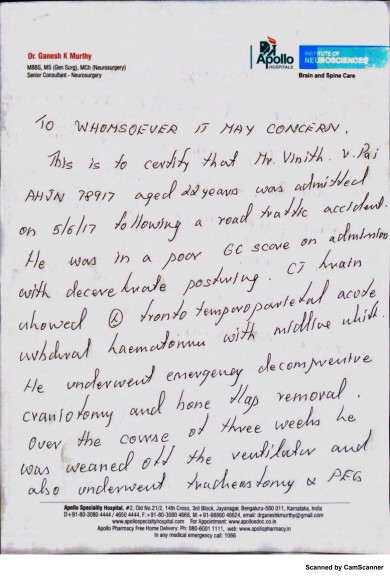 Dr. Ganesh K Murthy
MBBS, MS (Gen Surg), MCh (Neurosurgery)
Senior Consultant - Neurosurgery
Apollo
HOSPITALS
INSTITUTE OF
NEUROSCIENCES
Brain and Spine Care
TO WHOMSOEVER IT MAY CONCERN.
This is to certify that Mr. Vinith. V. Pai
AHJN 78917 aged 22 years was admitted
on 5/6/17 following a road traffic accident.
He was in a poor GC score on admission
with decerebrate posturing. CT brain
showed fronto temporoparietal acute
subdural haematoma with midline shift.
He underwent emergency decompressive
craniotomy and bone flap removal.
Over the course of three weeks he
was weaned off the ventilator and
also underwent tracheostomy & PEG
Apollo Speciality Hospital, #2, Old No.21/2, 14th Cross, 3rd Block, Jayanagar, Bengaluru-560 011, Karnataka, India
D+91-80-3080 4444 / 4650 4444, F:+91-80-3080 4666, M:+91-98860 46624, email: drganeshkmurthy@gmail.com
www.apollospecialityhospital.com For Appointment: www.apolloedoc.co.in
Apollo Pharmacy Free Home Delivery: Ph: 080-6001 1111, web: www.apollopharmacy.in
In any medical emergency call: 1066
Scanned by CamScanner